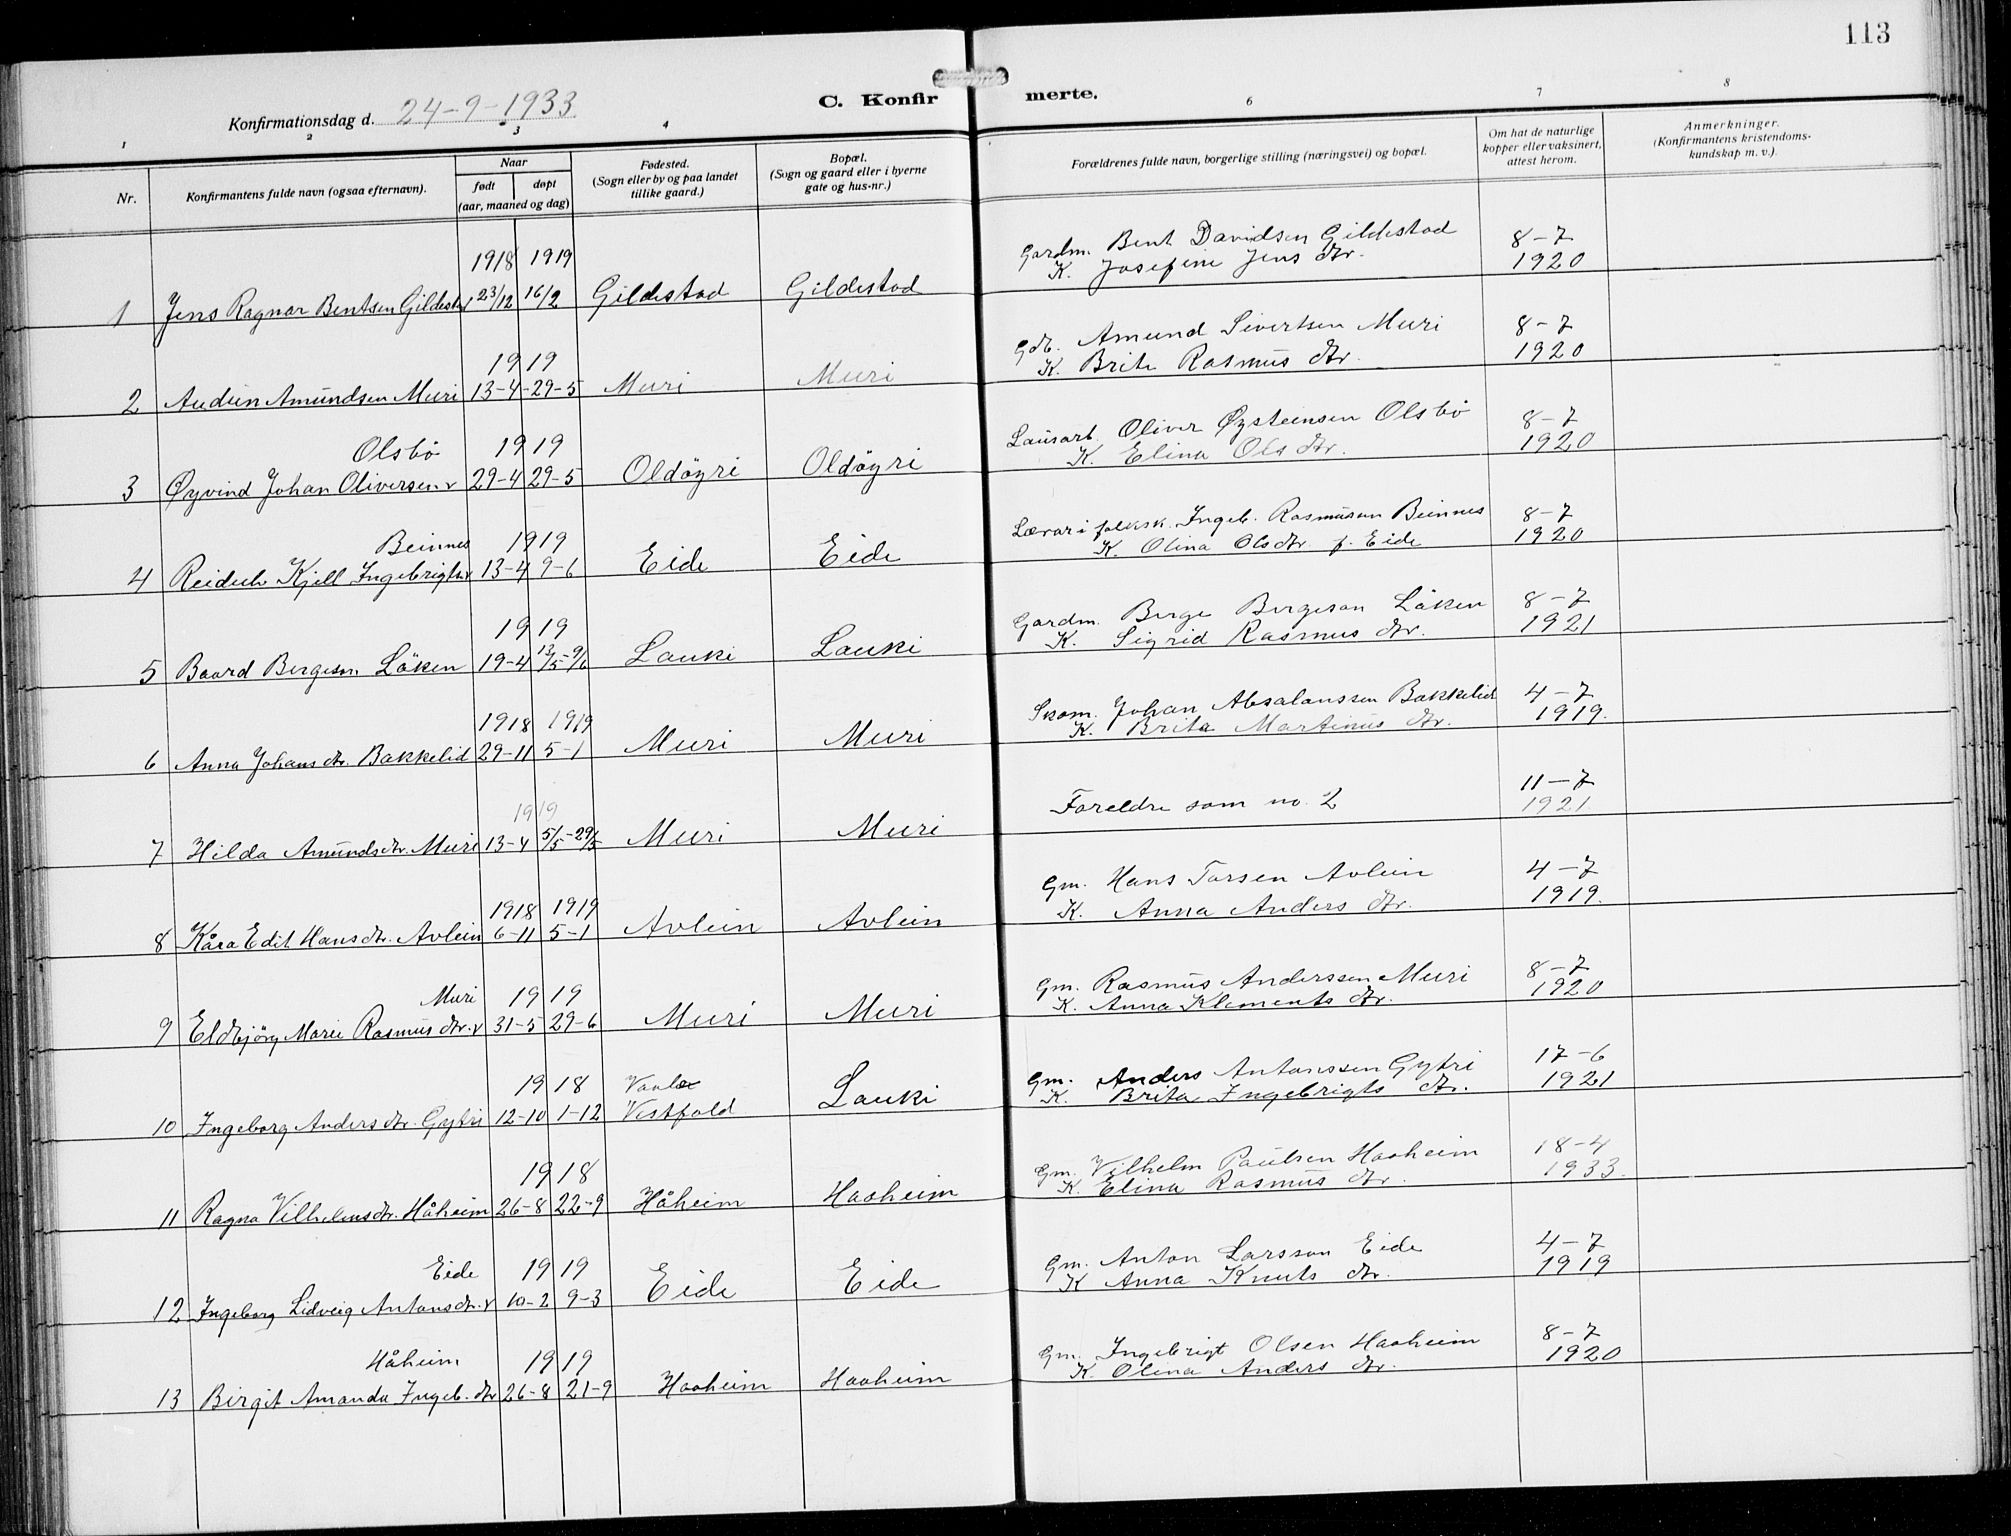 113
Konfirmationsdag d. 24-9-1933
C. Konfir merte.
1 2 3 4 6 7 8
Nr.
Konfirmantens fulde navn (ogsaa efternavn).
Naar
født døpt
(aar, maaned og dag)
Fødested.
(Sogn eller by og paa landet
tillike gaard.)
Bopæl.
(Sogn og gaard eller i byerne
gate og hus-nr.)
Forældrenes fulde navn, borgerlige stilling (næringsvei) og bopæl.
Om hat de naturlige
kopper eller vaksinert,
attest herom.
Anmerkninger.
(Konfirmantens kristendoms-
kundskap m. v.).
1918 1919 Gardm. Bent Davidsen Gildestad 8-7
1 Jens Ragnar Bentsen Gildestad 23/12 16/2 Gildestad Gildestad K. Josefine Jens dtr. 1920
1919 Gdb. Amund Sivertsen Muri 8-7
2 Audun Amundsen Muri 13-4 29-5 Muri Muri K. Brite Rasmus dtr. 1920
Olsbö 1919 Lausarb. Oliver Øysteinsen Olsbö 8-7
3 Øyvind Johan Oliversen 29-4 29-5 Oldöyri Oldöyri K. Elina Ols dtr. 1920
Beinnes 1919 Lærar i folkesk. Ingeb. Rasmusen Beinnes 8-7
4 Reidulv Kjell Ingebrigts. 13-4 9-6 Eide Eide K. Olina Olsdtr. f. Eide 1920
1919 Gardm. Berge Bergeson Löken 8-7
5 Baard Bergeson Löken 19-4 13/5-9/6 Lauki Lauki K. Sigrid Rasmus dtr. 1921
1918 1919 Skom. Johan Absalonssen Bakkelid 4-7
6 Anna Johans dtr. Bakkelid 29-11 5-1 Muri Muri K. Brita Martinus dtr. 1919.
1919 Foreldre som no. 2 11-7
7 Hilda Amundsdtr. Muri 13-4 5/5-29/5 Muri Muri 1921
1918 1919 Gm. Hans Tarsen Avlein 4-7
8 Kåra Edit Hans dtr. Avlein 6-11 5-1 Avlein Avlein K. Anna Anders dtr. 1919.
Muri 1919 Gm. Rasmus Anderssen Muri 8-7
9 Eldbjörg Marie Rasmus dtr. 31-5 29-6 Muri Muri K. Anna Klements dtr. 1920
1918 Vaale Gm. Anders Antonssen Gytri 17-6
10 Ingeborg Anders dtr. Gytri 12-10 1-12 Vestfold Lauki K. Brita Ingebrigts dtr. 1921
1918 Gm. Vilhelm Paulsen Haaheim 18-4
11 Ragna Vilhelmsdtr. Håheim 26-8 22-9 Håheim Haaheim K. Elina Rasmus dtr. 1933.
Eide 1919 Gm. Anton Larsson Eide 4-7
12 Ingeborg Lidveig Antonsdtr. 10-2 9-3 Eide Eide K Anna Knuts dtr. 1919
Håheim 1919 Gm. Ingebrigt Olsen Haaheim 8-7
13 Birgit Amanda Ingeb. dtr 26-8 21-9 Haaheim Haaheim K. Olina Anders dtr. 1920